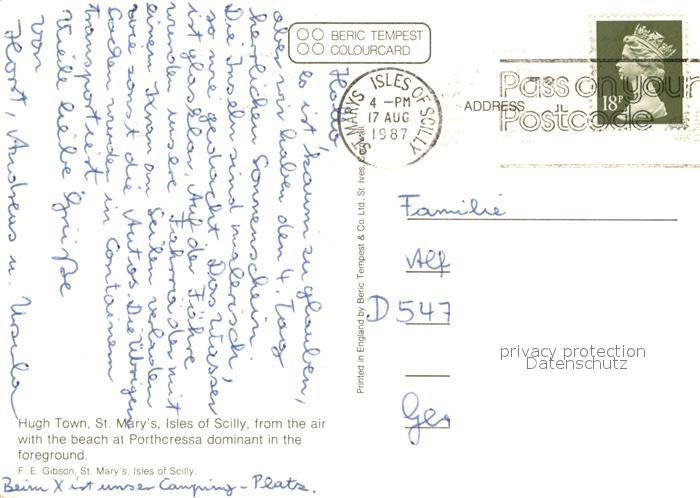 BERIC TEMPEST
COLOURCARD
ST MARYS ISLES OF SCILLY
4 - PM
17 AUG
1987
Pass on your
Postcode
18P
ADDRESS
Hallo
es ist kaum zu glauben,
aber wir haben den 4. Tag
herrlichen Sonnenschein.
Die Inseln sind malerisch,
so wie gedacht. Das Wasser
ist glasklar. Auf der Fähre
wurden unsere Fahrräder mit
einem Kran an Seilen verladen
wie sonst die Autos. Die übrigen
Sachen wurden in Containern
transportiert.
Viele liebe Grüße
von
Horst, Andreas u. Ursula
Printed in England by Beric Tempest & Co. Ltd., St. Ives, Cornwall
Familie
Alf
D 547
Ger
privacy protection
Datenschutz
Hugh Town, St. Mary's, Isles of Scilly, from the air
with the beach at Porthcressa dominant in the
foreground.
F. E. Gibson, St. Mary's, Isles of Scilly.
Beim X ist unser Camping-Platz.